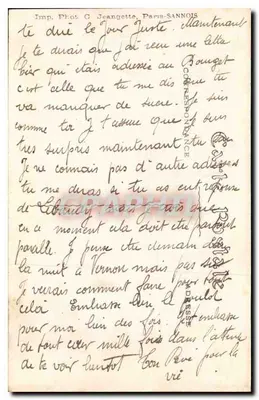 Imp. Phot. C. Jeangette, Paris-SANNOIS
te dire le Jour Juste. Maintenant
Je te dirais que j'ai reçu une lettre
hier qui était adressée au Bourget
c'est celle que tu me dis que tu
va manquer de sucre. Je suis
comme toi je t'assure que je suis
très surpris maintenant tu
Je ne connais pas d'autre adresse
tu me diras si tu as eut réponse
de
en ce moment cela doit être partout
pareille. Je pense être demain dans
la nuit à Vernon mais pas sur
Je verrais comment faire pour tout
celà Embrasse bien le loulou
pour moi bien des fois. Je t'embrasse
de tout cœur mille fois dans l'attente
de te voir bientôt Ton René pour la
vie
CORRESPONDANCE
Carte Postale
ADRESSE